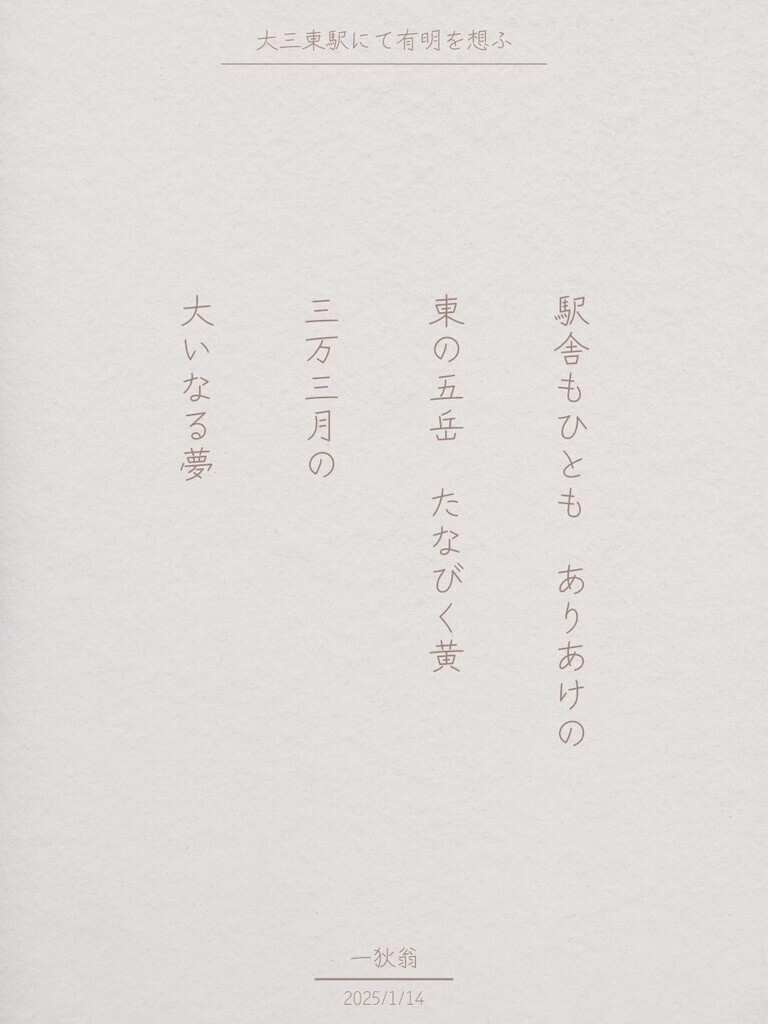 大三東駅にて有明を想ふ
駅舎もひとも　ありあけの
東の五岳　たなびく黄
三万三月の
大いなる夢
一狄翁
2025/1/14